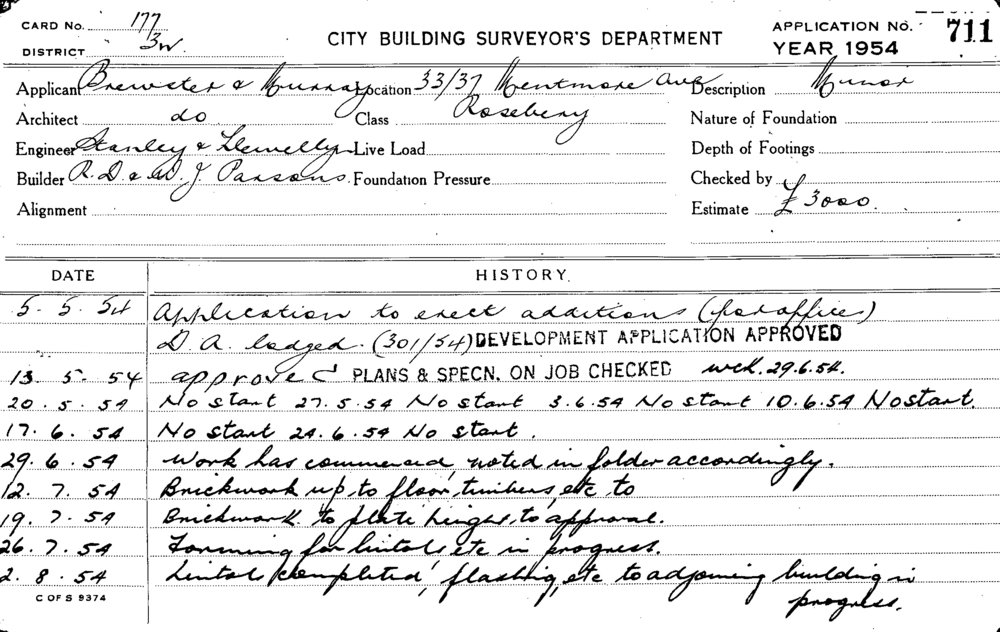 CARD No. 177
DISTRICT 3W
CITY BUILDING SURVEYOR'S DEPARTMENT
APPLICATION No. 711
YEAR 1954
Applicant Brewster & Murray Location 33/37 Mentmore Ave Description Minor
Architect do Class Rosebery Nature of Foundation
Engineer Stanley & Llewellyn Live Load Depth of Footings
Builder R. D. & W. J. Parsons. Foundation Pressure Checked by
Alignment Estimate £3000.
DATE HISTORY.
5. 5. 54 Application to erect additions (for offices)
D. A. lodged. (301/54) DEVELOPMENT APPLICATION APPROVED
13. 5. 54 approved PLANS & SPECN. ON JOB CHECKED 29.6.54.
20. 5. 54 No start 27.5.54 No start 3.6.54 No start 10.6.54 No start.
17. 6. 54 No start 24.6.54 No start.
29. 6. 54 Work has commenced, noted in folder accordingly.
12. 7. 54 Brickwork up to floor, timbers, etc to
19. 7. 54 Brickwork to plate height, to approval.
26. 7. 54 Forming for lintols etc in progress.
2. 8. 54 Lintols completed, flashing, etc to adjoining building in
progress.
C OF S 9374